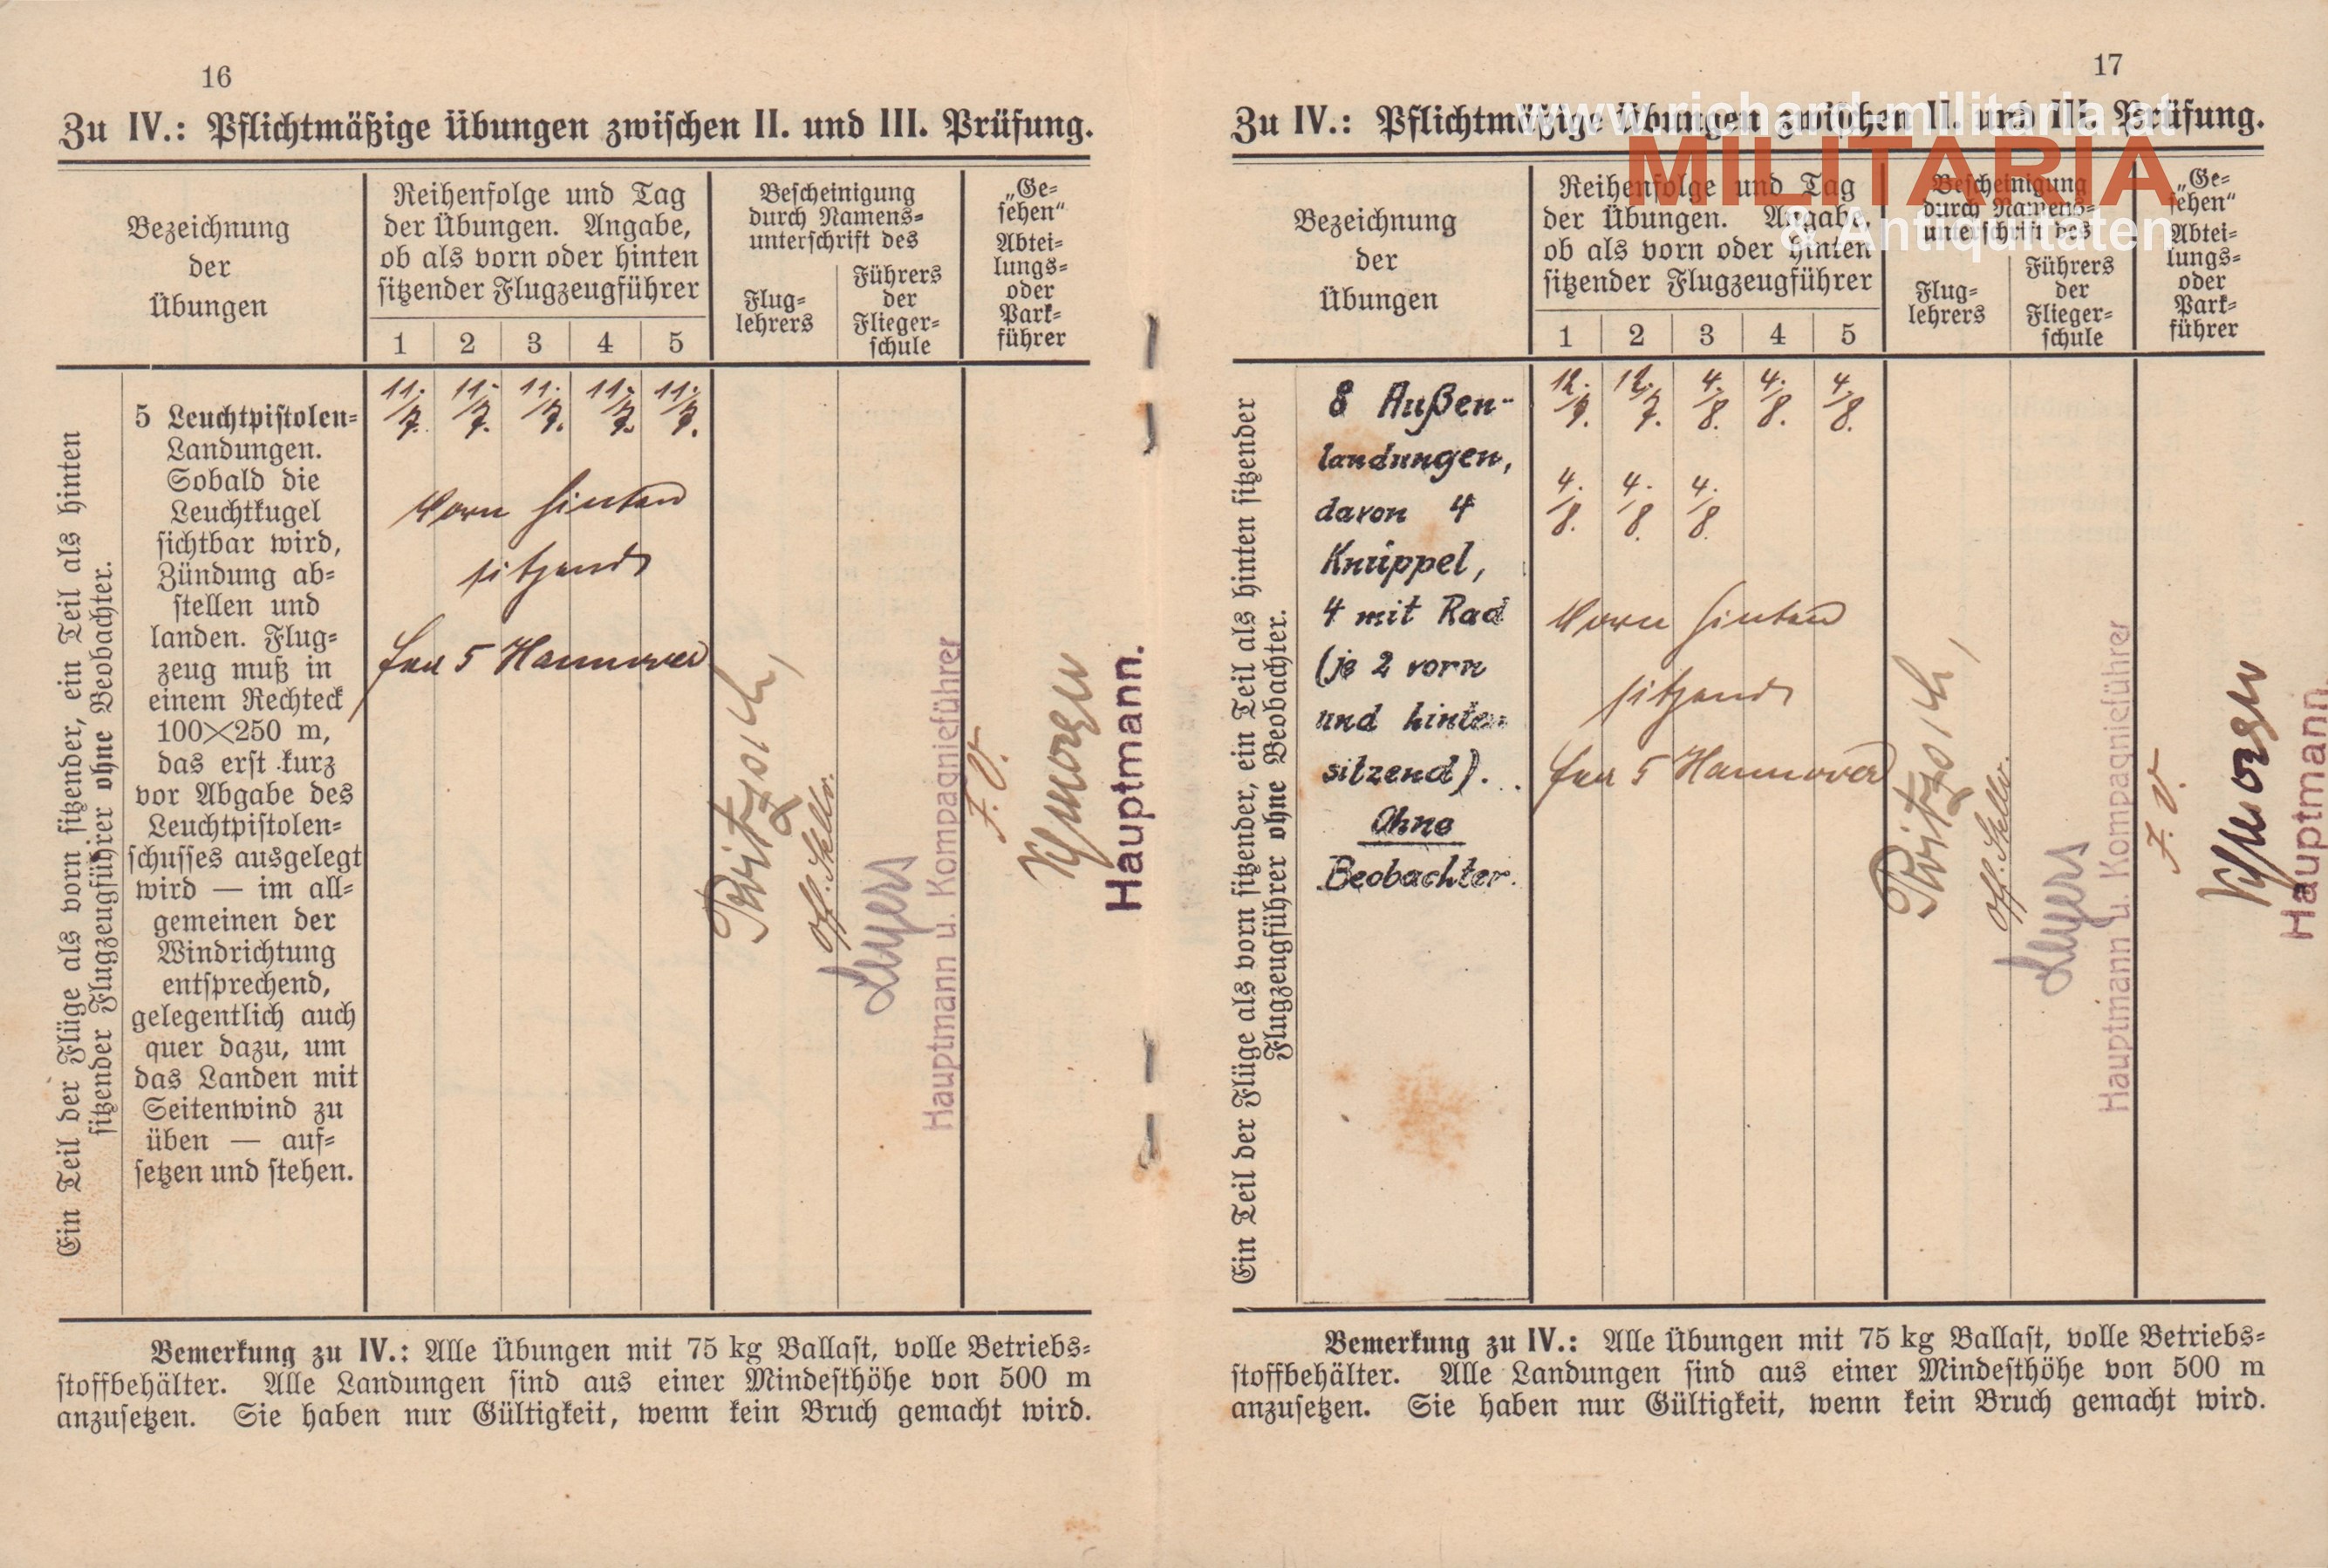 16
Zu IV.: Pflichtmäßige Übungen zwischen II. und III. Prüfung.
Bezeichnung
der
Übungen
Reihenfolge und Tag
der Übungen. Angabe,
ob als vorn oder hinten
sitzender Flugzeugführer
1 2 3 4 5
Bescheinigung
durch Namens=
unterschrift des
Flug=
lehrers
Führers
der
Flieger=
schule
„Ge=
sehen“
Abtei=
lungs=
oder
Park=
führer
Ein Teil der Flüge als vorn sitzender, ein Teil als hinten
sitzender Flugzeugführer ohne Beobachter.
5 Leuchtpistolen=
Landungen.
Sobald die
Leuchtkugel
sichtbar wird,
Zündung ab=
stellen und
landen. Flug=
zeug muß in
einem Rechteck
100×250 m,
das erst kurz
vor Abgabe des
Leuchtpistolen=
schusses ausgelegt
wird — im all=
gemeinen der
Windrichtung
entsprechend,
gelegentlich auch
quer dazu, um
das Landen mit
Seitenwind zu
üben — auf=
setzen und stehen.
11./7. 11./7. 11./7. 11./7. 11./7.
Vorn hinten
sitzend
5 Hannover
Off. Stellv.
Hauptmann u. Kompagnieführer
Hauptmann.
Bemerkung zu IV.: Alle Übungen mit 75 kg Ballast, volle Betriebs=
stoffbehälter. Alle Landungen sind aus einer Mindesthöhe von 500 m
anzusetzen. Sie haben nur Gültigkeit, wenn kein Bruch gemacht wird.
17
Zu IV.: Pflichtmäßige Übungen zwischen II. und III. Prüfung.
www.richard-militaria.at
MILITARIA
& Antiquitäten
Bezeichnung
der
Übungen
Reihenfolge und Tag
der Übungen. Angabe,
ob als vorn oder hinten
sitzender Flugzeugführer
1 2 3 4 5
Bescheinigung
durch Namens=
unterschrift des
Flug=
lehrers
Führers
der
Flieger=
schule
„Ge=
sehen“
Abtei=
lungs=
oder
Park=
führer
Ein Teil der Flüge als vorn sitzender, ein Teil als hinten sitzender
Flugzeugführer ohne Beobachter.
8 Außen-
landungen,
davon 4
Knüppel,
4 mit Rad
(je 2 vorn
und hinten
sitzend).
Ohne
Beobachter.
12./7. 4./8. 4./8. 4./8.
4./8. 4./8. 4./8
Vorn hinten
sitzend
5 Hannover
Off. Stellv.
Hauptmann u. Kompagnieführer
Hauptmann.
Bemerkung zu IV.: Alle Übungen mit 75 kg Ballast, volle Betriebs=
stoffbehälter. Alle Landungen sind aus einer Mindesthöhe von 500 m
anzusetzen. Sie haben nur Gültigkeit, wenn kein Bruch gemacht wird.